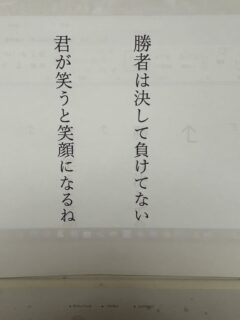 勝者は決して負けてない
君が笑うと笑顔になるね